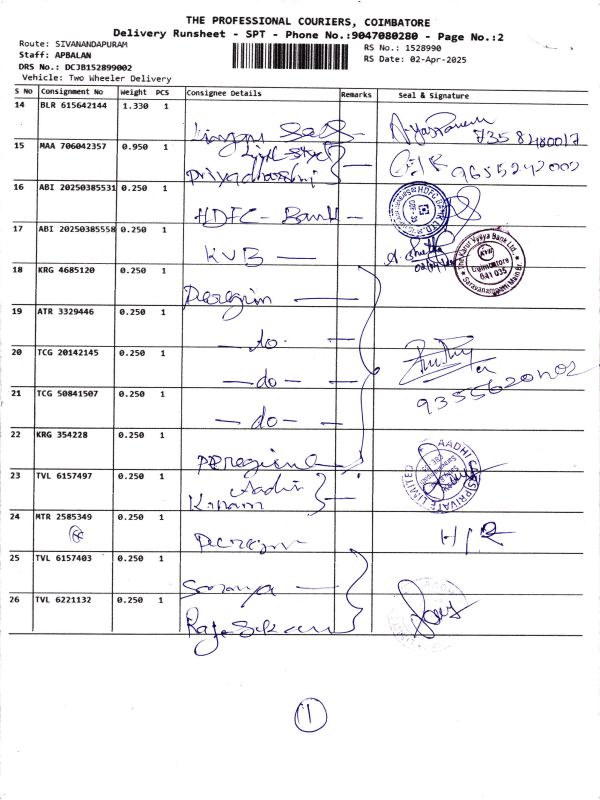 THE PROFESSIONAL COURIERS, COIMBATORE
Delivery Runsheet - SPT - Phone No.:9047080280 - Page No.:2
Route: SIVANANDAPURAM
Staff: APBALAN
DRS No.: DCJB152899002
Vehicle: Two Wheeler Delivery
RS No.: 1528990
RS Date: 02-Apr-2025
S No Consignment No Weight PCS Consignee Details Remarks Seal & Signature
14 BLR 615642144 1.330 1
7358480017
15 MAA 706042357 0.950 1
Priyadharshni
9655242002
16 ABI 20250385531 0.250 1
HDFC - Bank -
HDFC BANK LTD
17 ABI 20250385558 0.250 1
KVB —
The Karur Vysya Bank Ltd.
KVB
Coimbatore
641 035
Saravanampatti Main Br.
18 KRG 4685120 0.250 1
Peregrin —
19 ATR 3329446 0.250 1
— do - —
20 TCG 20142145 0.250 1
— do - —
21 TCG 50841507 0.250 1
— do - —
22 KRG 354228 0.250 1
AADHI CARS PRIVATE LIMITED
23 TVL 6157497 0.250 1
Aadhi
24 MTR 2585349 0.250 1
H/R
25 TVL 6157403 0.250 1
26 TVL 6221132 0.250 1
11